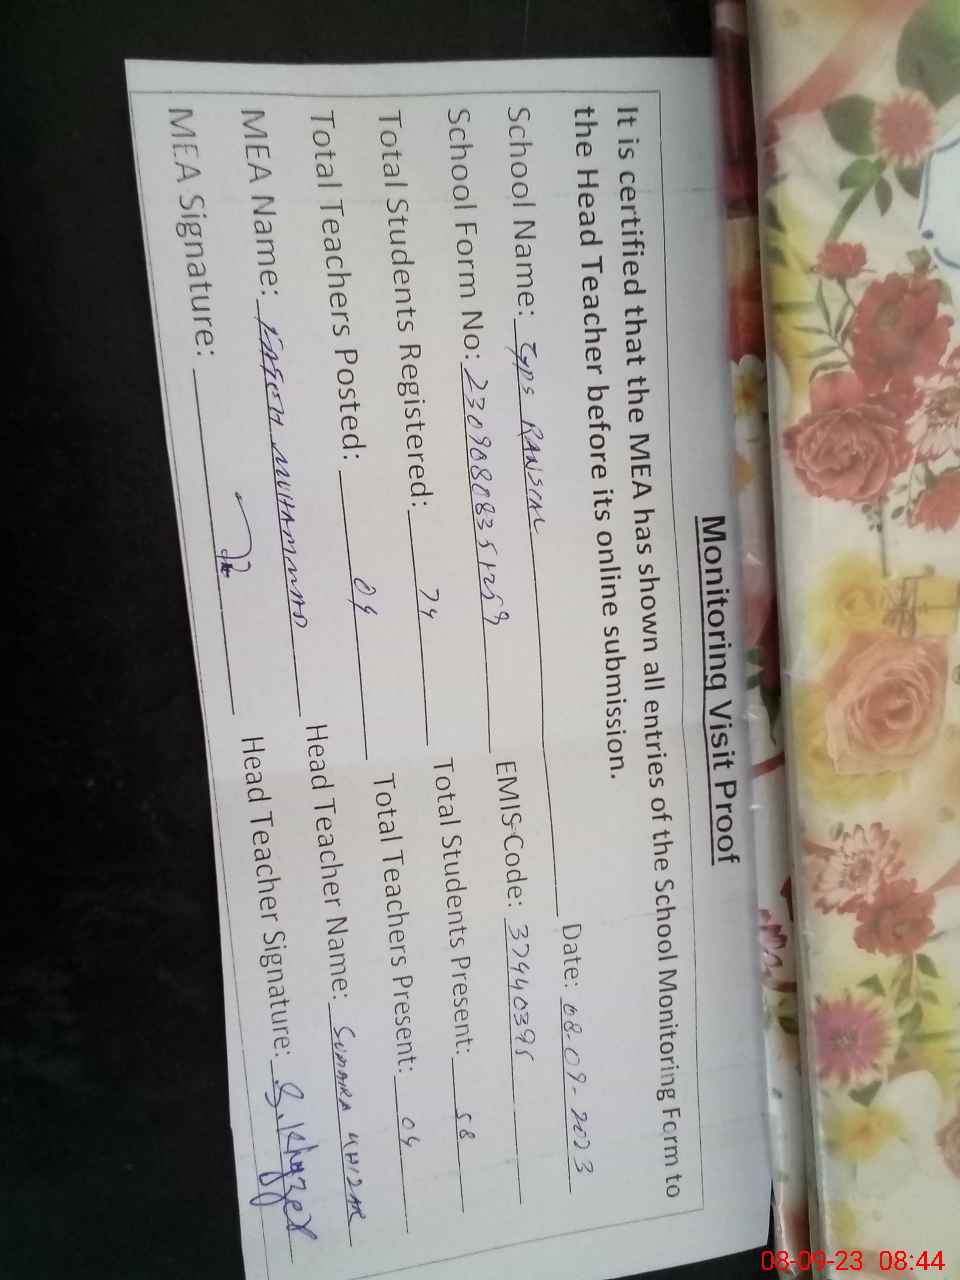 Monitoring Visit Proof
It is certified that the MEA has shown all entries of the School Monitoring Form to
the Head Teacher before its online submission.
School Name: RANSIAL Date: 08-09-2023
School Form No: EMIS Code: 37440395
Total Students Registered: 74 Total Students Present: 58
Total Teachers Posted: 04 Total Teachers Present: 04
MEA Name: MUHAMMAD Head Teacher Name: SUMAIRA KHIZAR
MEA Signature: Head Teacher Signature: S.Khyzer
08-09-23 08:44